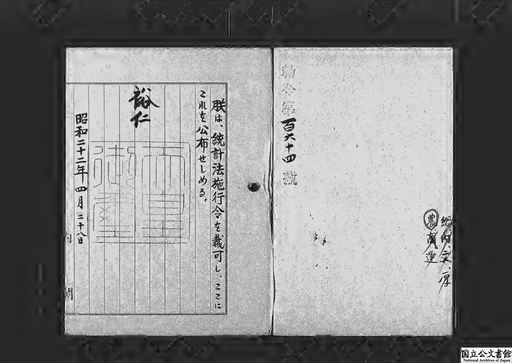 勅令第百六十四號
朕は、統計法施行令を裁可し、ここに
これを公布せしめる。
裕仁
天皇御璽
昭和二十二年四月二十八日
内閣
国立公文書館
National Archives of Japan